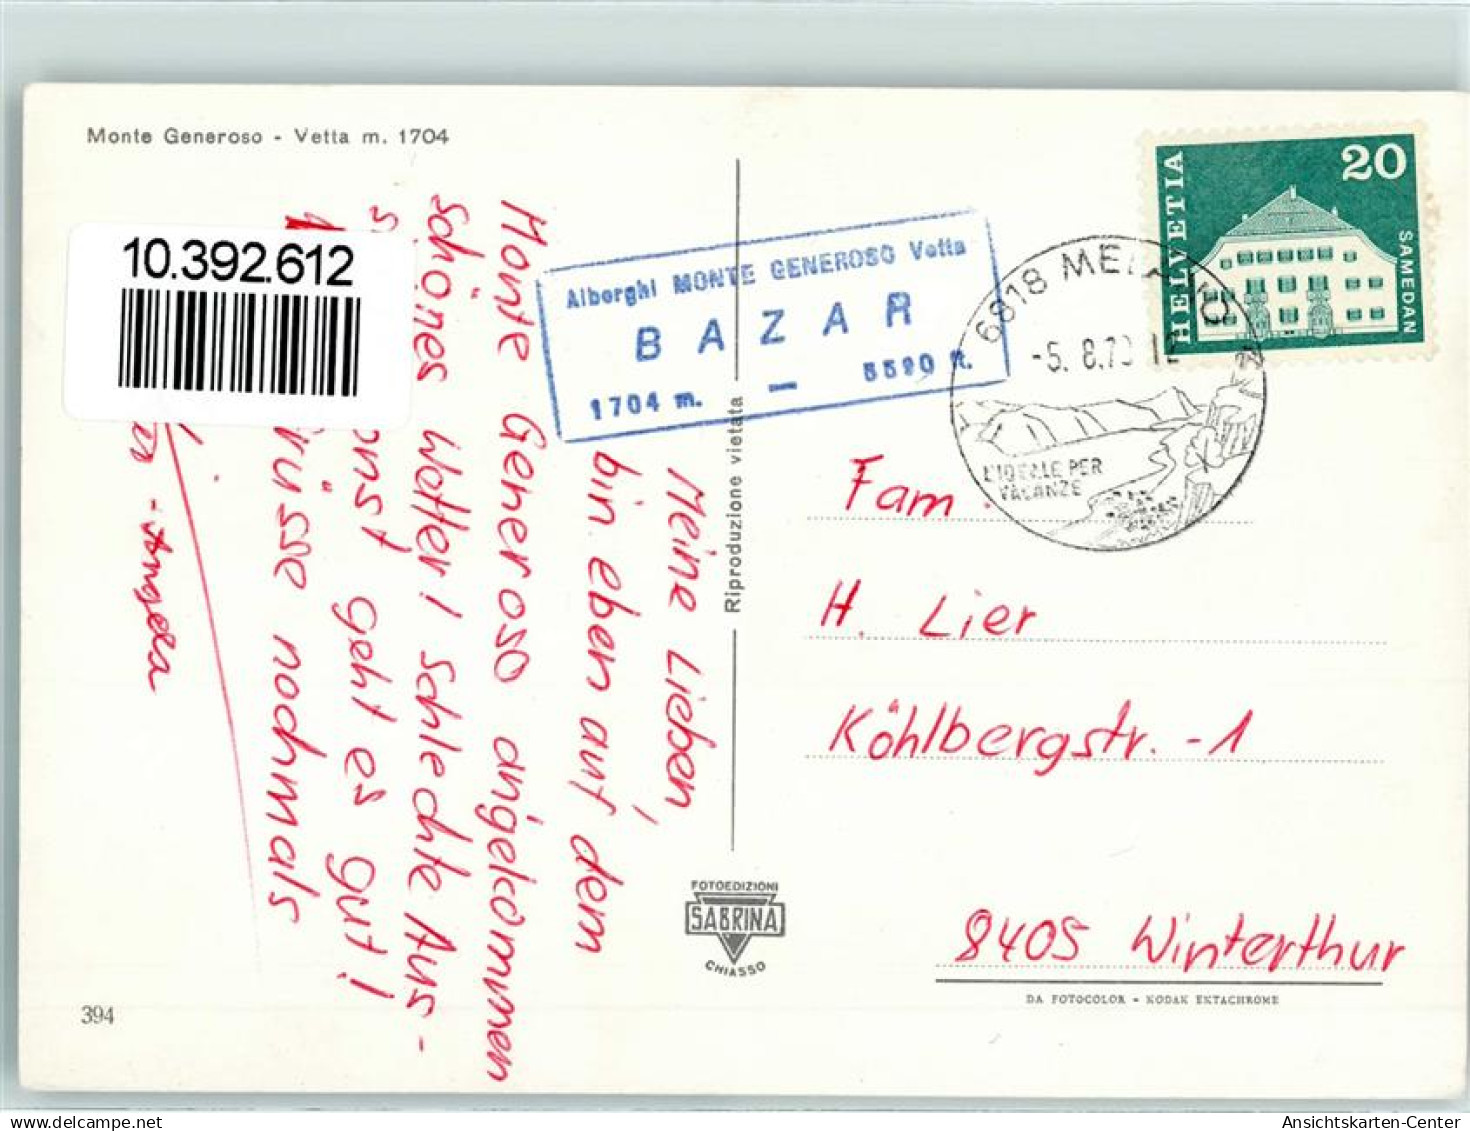 Monte Generoso - Vetta m. 1704
10.392.612
Meine Lieben,
bin eben auf dem
Monte Generoso angekommen
schönes Wetter! Schlechte Aus-
onst geht es gut!
rüsse nochmals
-Angela
394
Alberghi MONTE GENEROSO Vetta
BAZAR
1704 m. — 5590 ft.
Riproduzione vietata
FOTOEDIZIONI
SABRINA
CHIASSO
HELVETIA
20
SAMEDAN
6818
-5. 8.70
L'IDEALE PER
VACANZE
Fam.
H. Lier
Köhlbergstr. -1
8405 Winterthur
DA FOTOCOLOR - KODAK EKTACHROME
Ansichtskarten-Center